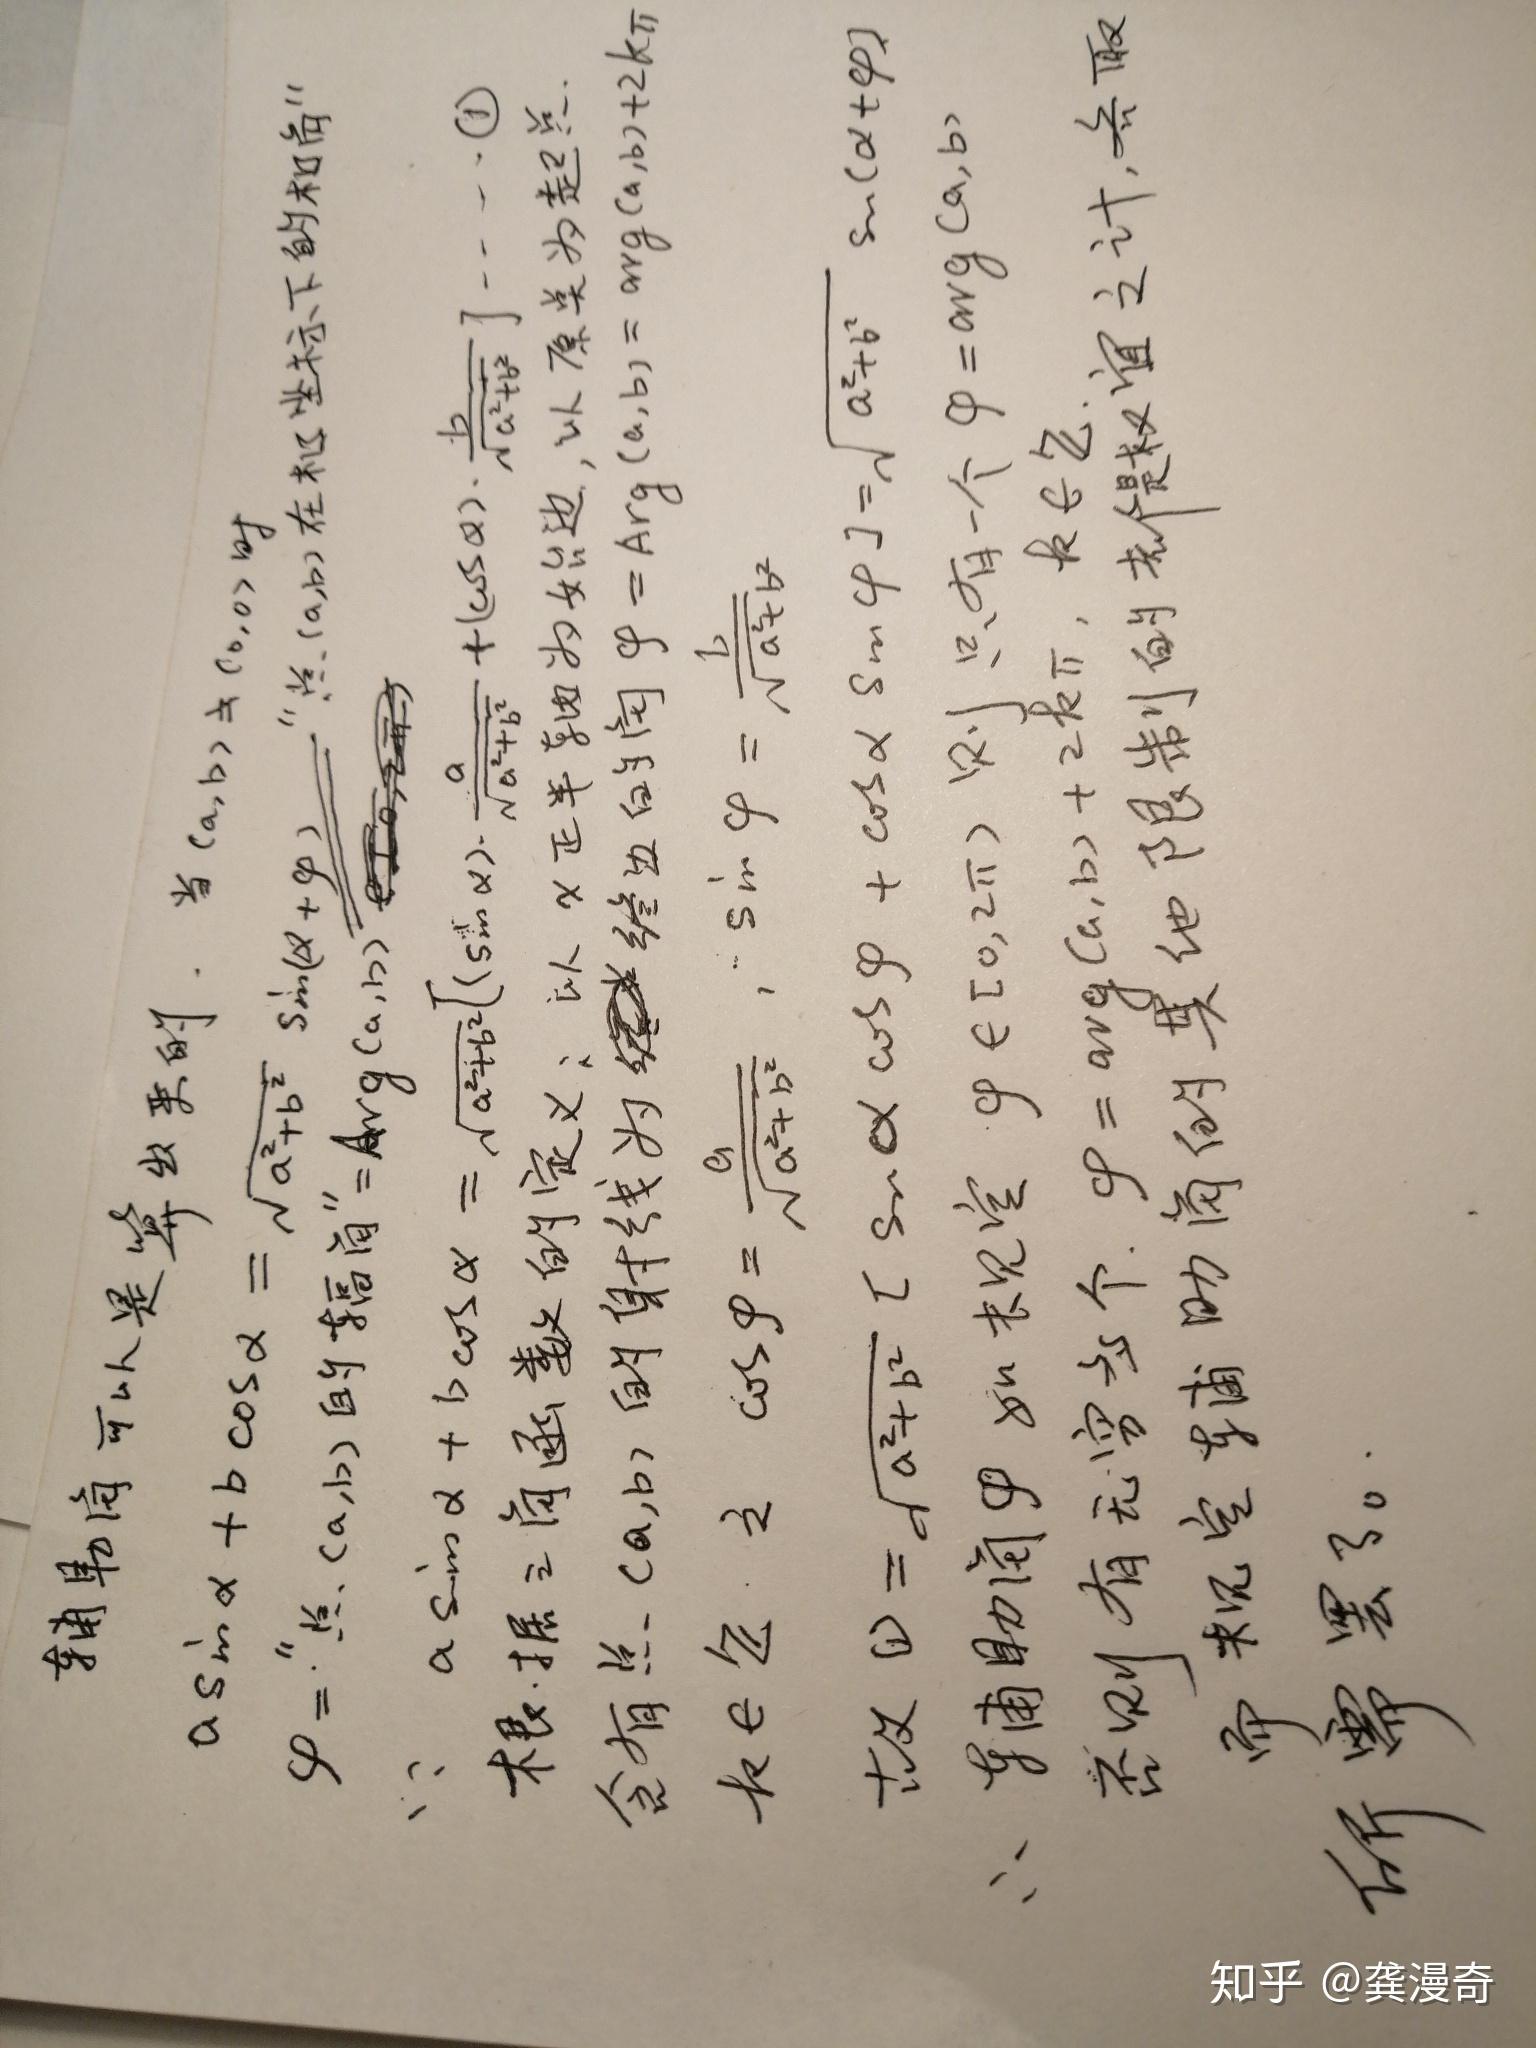 辅助角可以是算出来的. 当(a,b)≠(0,0)时
a sinα + b cosα = √(a²+b²) sin(α+φ)
φ="点(a,b)在极坐标下的极角"
="点(a,b)的辐角"=Arg(a,b)
∵ a sinα + b cosα = √(a²+b²)[(sinα)·a/√(a²+b²) + (cosα)·b/√(a²+b²)]----①
根据三角函数的定义:以x正半轴为始边,以原点为起点.
含有点(a,b)的射线为终边的角φ=Arg(a,b)=arg(a,b)+2kπ
k∈Z. 之 cosφ = a/√(a²+b²), sinφ = b/√(a²+b²)
故①=√(a²+b²)[sinα cosφ + cosα sinφ]=√(a²+b²) sin(α+φ)
∵辅助角φ如未规定 φ∈[0,2π) 则只有一个φ=arg(a,b)
否则有无穷多个. φ=arg(a,b)+2kπ, k∈Z.
未规定辅助角的其他限制的
所需罢了。
知乎 @龚漫奇